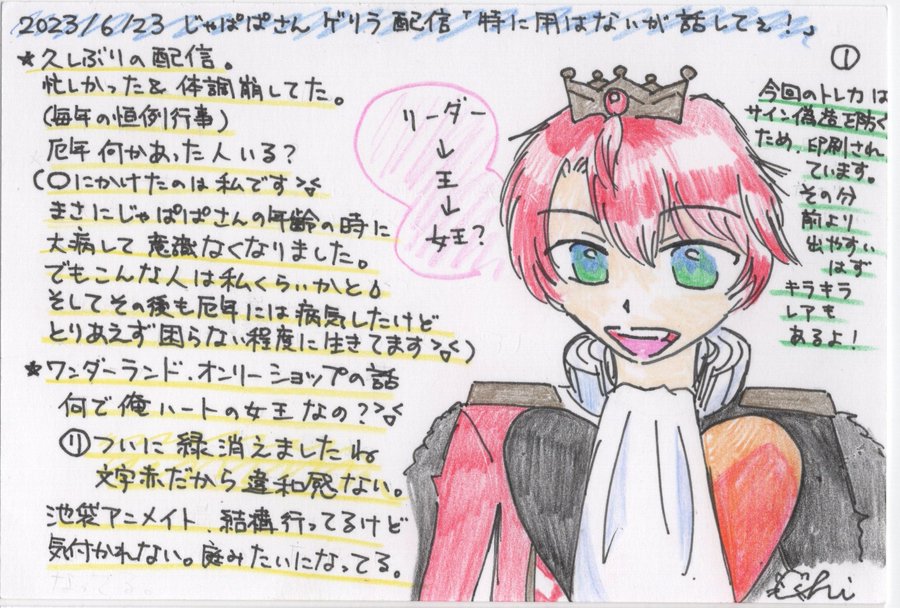 2023/6/23 じゃぱぱさん ゲリラ配信「特に用はないが話してぇ!」
①
★久しぶりの配信。
忙しかった&体調崩してた。
(毎年の恒例行事)
厄年何かあった人いる?
(〇にかけたのは私です
まさにじゃぱぱさんの年齢の時に
大病して意識なくなりました。
でもこんな人は私くらいかと
そしてその後も厄年には病気したけど
とりあえず困らない程度に生きてます)
★ワンダーランド.オンリーショップの話
何で俺ハートの女王なの?
リついに緑消えましたね
文字赤だから違和感ない。
池袋アニメイト.結構行ってるけど
気付かれない。庭みたいになってる。
リーダー
↓
王
↓
女王?
今回のトレカは
サイン偽造を防ぐ
ため、印刷され
ています。
その分
前より
出やすい
はず
キラキラ
レアも
あるよ!